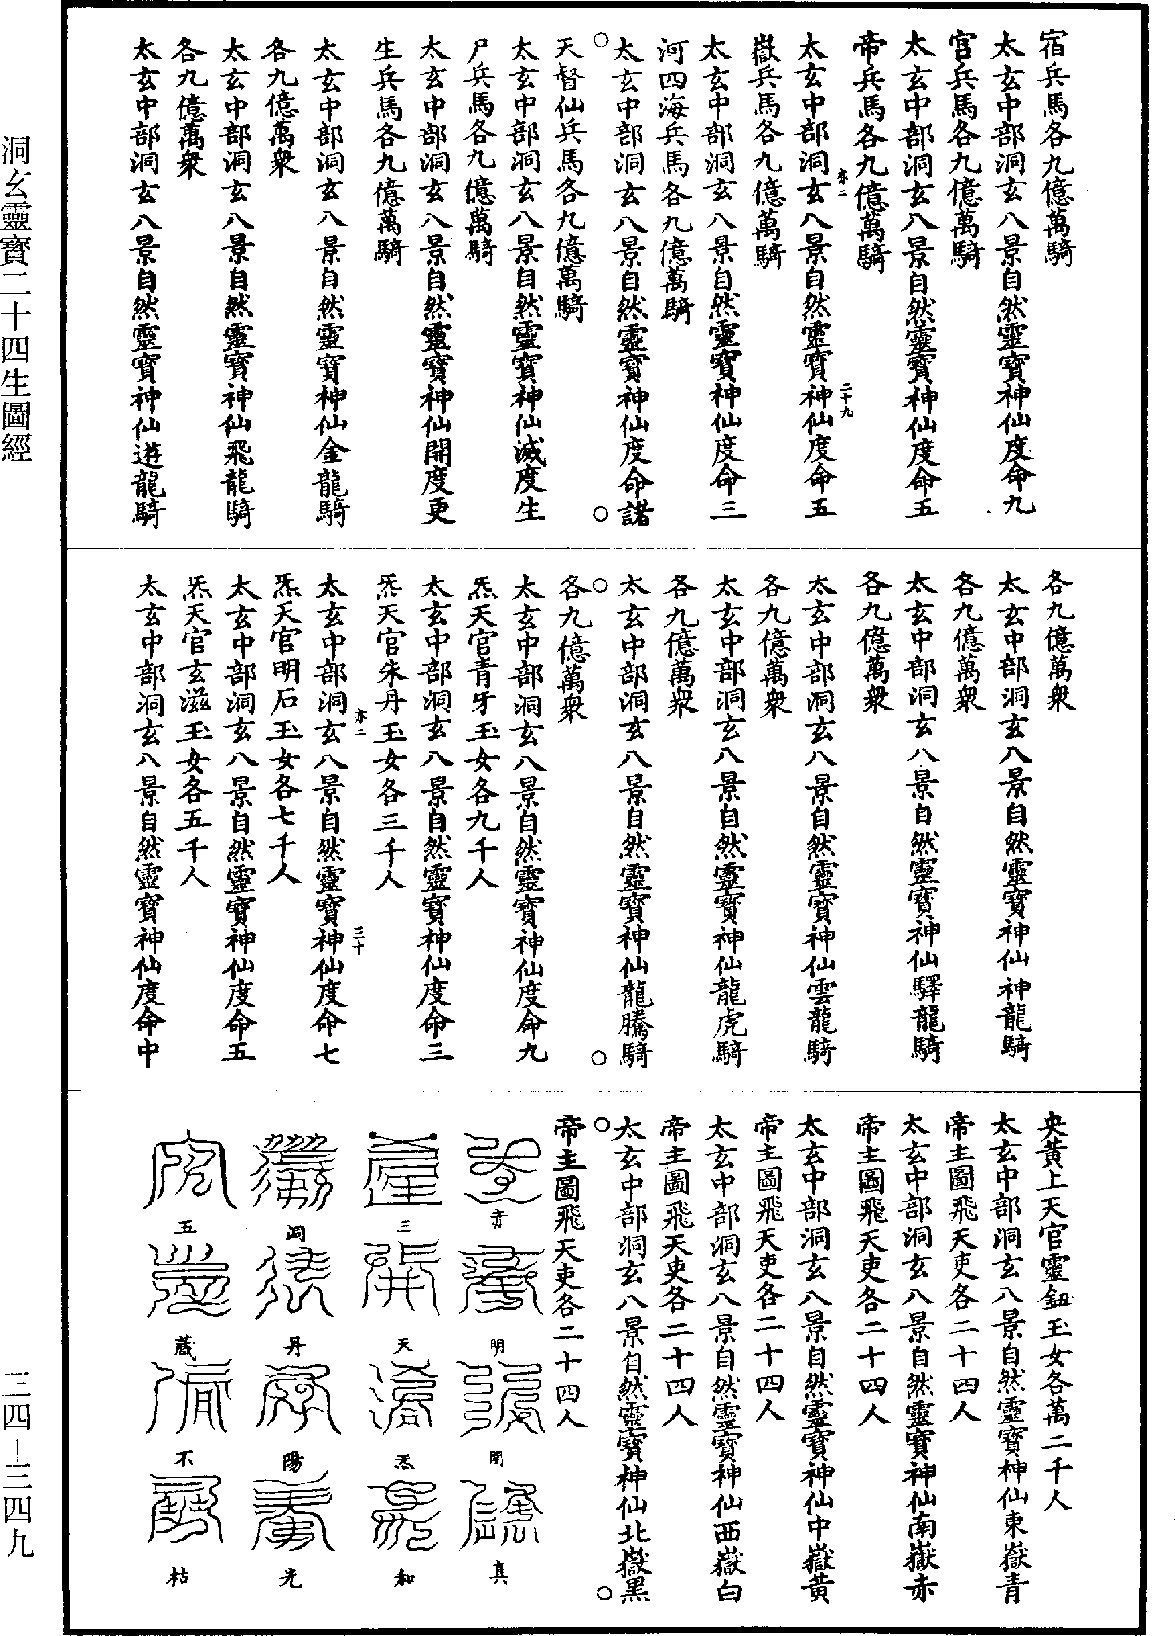 宿兵馬各九億萬騎
太玄中部洞玄八景自然靈寶神仙度命九
宫兵馬各九億萬騎
太玄中部洞玄八景自然靈寶神仙度命五
帝兵馬各九億萬騎
亦二 二十九
太玄中部洞玄八景自然靈寶神仙度命五
嶽兵馬各九億萬騎
太玄中部洞玄八景自然靈寶神仙度命三
河四海兵馬各九億萬騎
太玄中部洞玄八景自然靈寶神仙度命諸
天督仙兵馬各九億萬騎
太玄中部洞玄八景自然靈寶神仙滅度生
尸兵馬各九億萬騎
太玄中部洞玄八景自然靈寶神仙開度更
生兵馬各九億萬騎
太玄中部洞玄八景自然靈寶神仙金龍騎
各九億萬衆
太玄中部洞玄八景自然靈寶神仙飛龍騎
各九億萬衆
太玄中部洞玄八景自然靈寶神仙遊龍騎
各九億萬衆
太玄中部洞玄八景自然靈寶神仙神龍騎
各九億萬衆
太玄中部洞玄八景自然靈寶神仙驛龍騎
各九億萬衆
太玄中部洞玄八景自然靈寶神仙雲龍騎
各九億萬衆
太玄中部洞玄八景自然靈寶神仙龍虎騎
各九億萬衆
太玄中部洞玄八景自然靈寶神仙龍騰騎
各九億萬衆
太玄中部洞玄八景自然靈寶神仙度命九
炁天官青牙玉女各九千人
太玄中部洞玄八景自然靈寶神仙度命三
炁天官朱丹玉女各三千人
亦二 三十
太玄中部洞玄八景自然靈寶神仙度命七
炁天官明石玉女各七千人
太玄中部洞玄八景自然靈寶神仙度命五
炁天官玄滋玉女各五千人
太玄中部洞玄八景自然靈寶神仙度命中
央黄上天官靈鈕玉女各萬二千人
太玄中部洞玄八景自然靈寶神仙東嶽青
帝主圖飛天吏各二十四人
太玄中部洞玄八景自然靈寶神仙南嶽赤
帝主圖飛天吏各二十四人
太玄中部洞玄八景自然靈寶神仙中嶽黄
帝主圖飛天吏各二十四人
太玄中部洞玄八景自然靈寶神仙西嶽白
帝主圖飛天吏各二十四人
太玄中部洞玄八景自然靈寶神仙北嶽黑
帝主圖飛天吏各二十四人
亦 明 開 真
三 天 炁 和
洞 丹 陽 光
五 藏 不 枯
洞玄靈寶二十四生圖經
三四—三四九